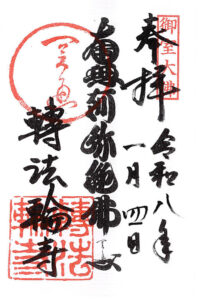 御室大佛
奉拝
令和八年
一月四日
南無阿弥陀佛
轉法輪寺
轉法輪寺